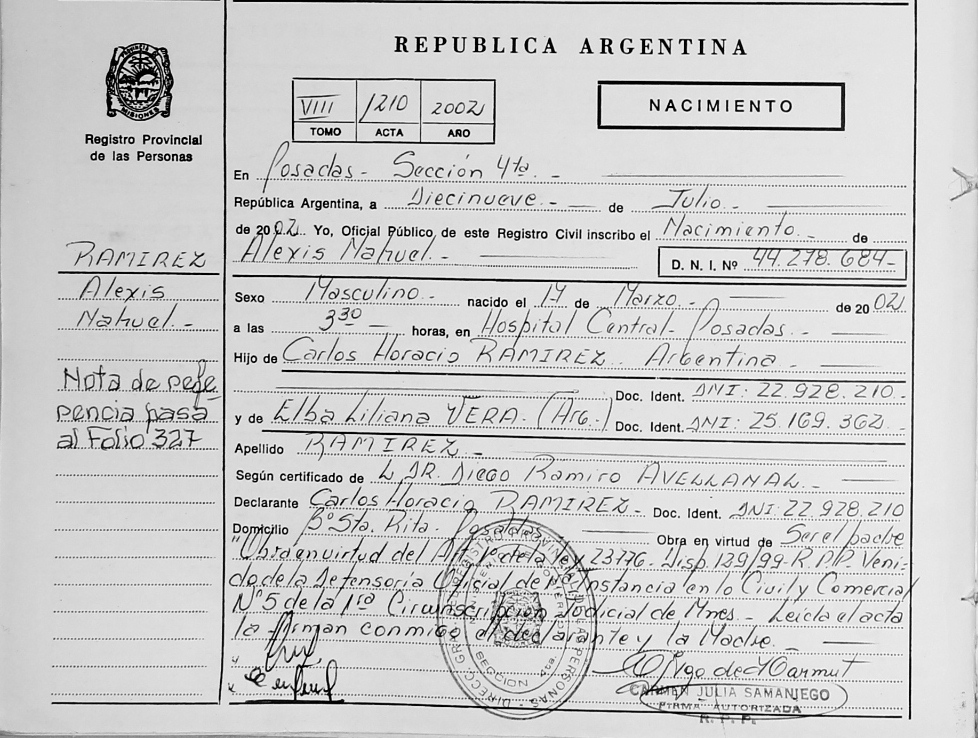 REPUBLICA ARGENTINA
PROVINCIA DE MISIONES
Registro Provincial
de las Personas
VIII 1210 2002
TOMO ACTA AÑO
NACIMIENTO
En Posadas - Sección 4ta. -
República Argentina, a Diecinueve. - de Julio. -
de 2002. Yo, Oficial Público, de este Registro Civil inscribo el Nacimiento. - de
Alexis Nahuel. - D. N. I. Nº 44.278.684-
RAMIREZ
Alexis
Nahuel. -
Sexo Masculino. - nacido el 17 de Marzo. - de 2002
a las 3:30 - horas, en Hospital Central - Posadas. -
Hijo de Carlos Horacio RAMIREZ. Argentina
Doc. Ident. DNI: 22.928.210.-
y de Elba Liliana VERA. (Arg.) Doc. Ident. DNI: 25.169.362.-
Nota de refe
rencia pasa
al Folio 327
Apellido RAMIREZ. -
Según certificado de L DR. Diego Ramiro AVELLANAL. -
Declarante Carlos Horacio RAMIREZ. - Doc. Ident. DNI: 22.928.210
Domicilio Bº Sta. Rita. Posadas. Obra en virtud de Ser el padre
"Obra en virtud del Art. de la ley 23776. Disp. 129/99-R.P.P. Veni-
do de la Defensoria Oficial de Instancia en lo Civil y Comercial
Nº5 de la 1ra Circunscripcion Judicial de Mnes. - Leida el acta
la firman conmigo el declarante y la Madre. -
CARMEN JULIA SAMANIEGO
FIRMA AUTORIZADA
R. P. P.